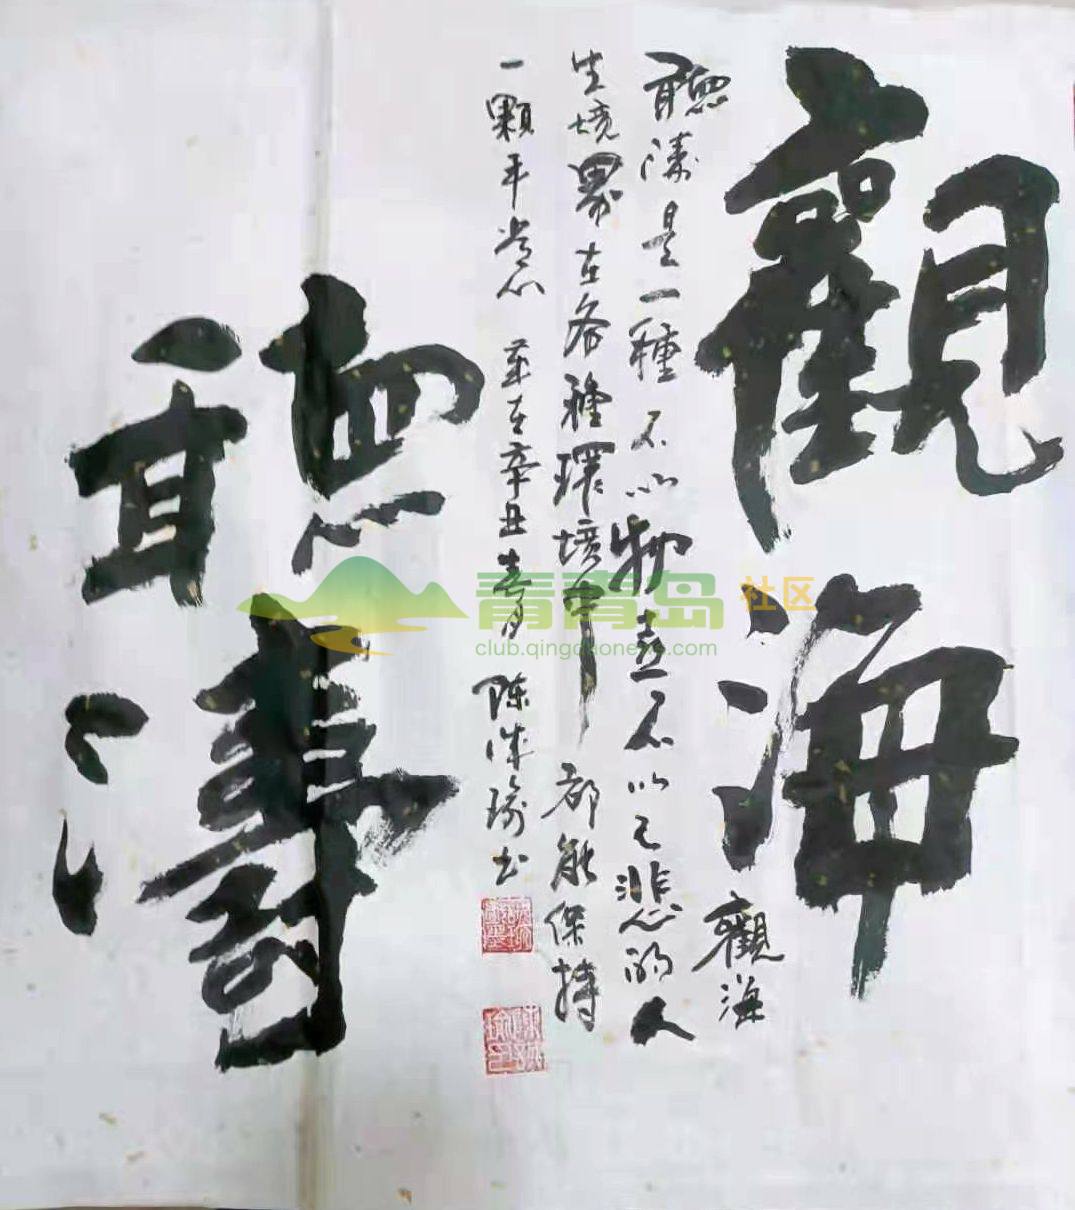 觀海
聽濤
觀海
聽濤是一種不以物喜不以己悲的人
生境界在各種環境中都能保持
一顆平常心 辛丑春月 陈 瑜书
青青岛社区
club.qingdaonews.com